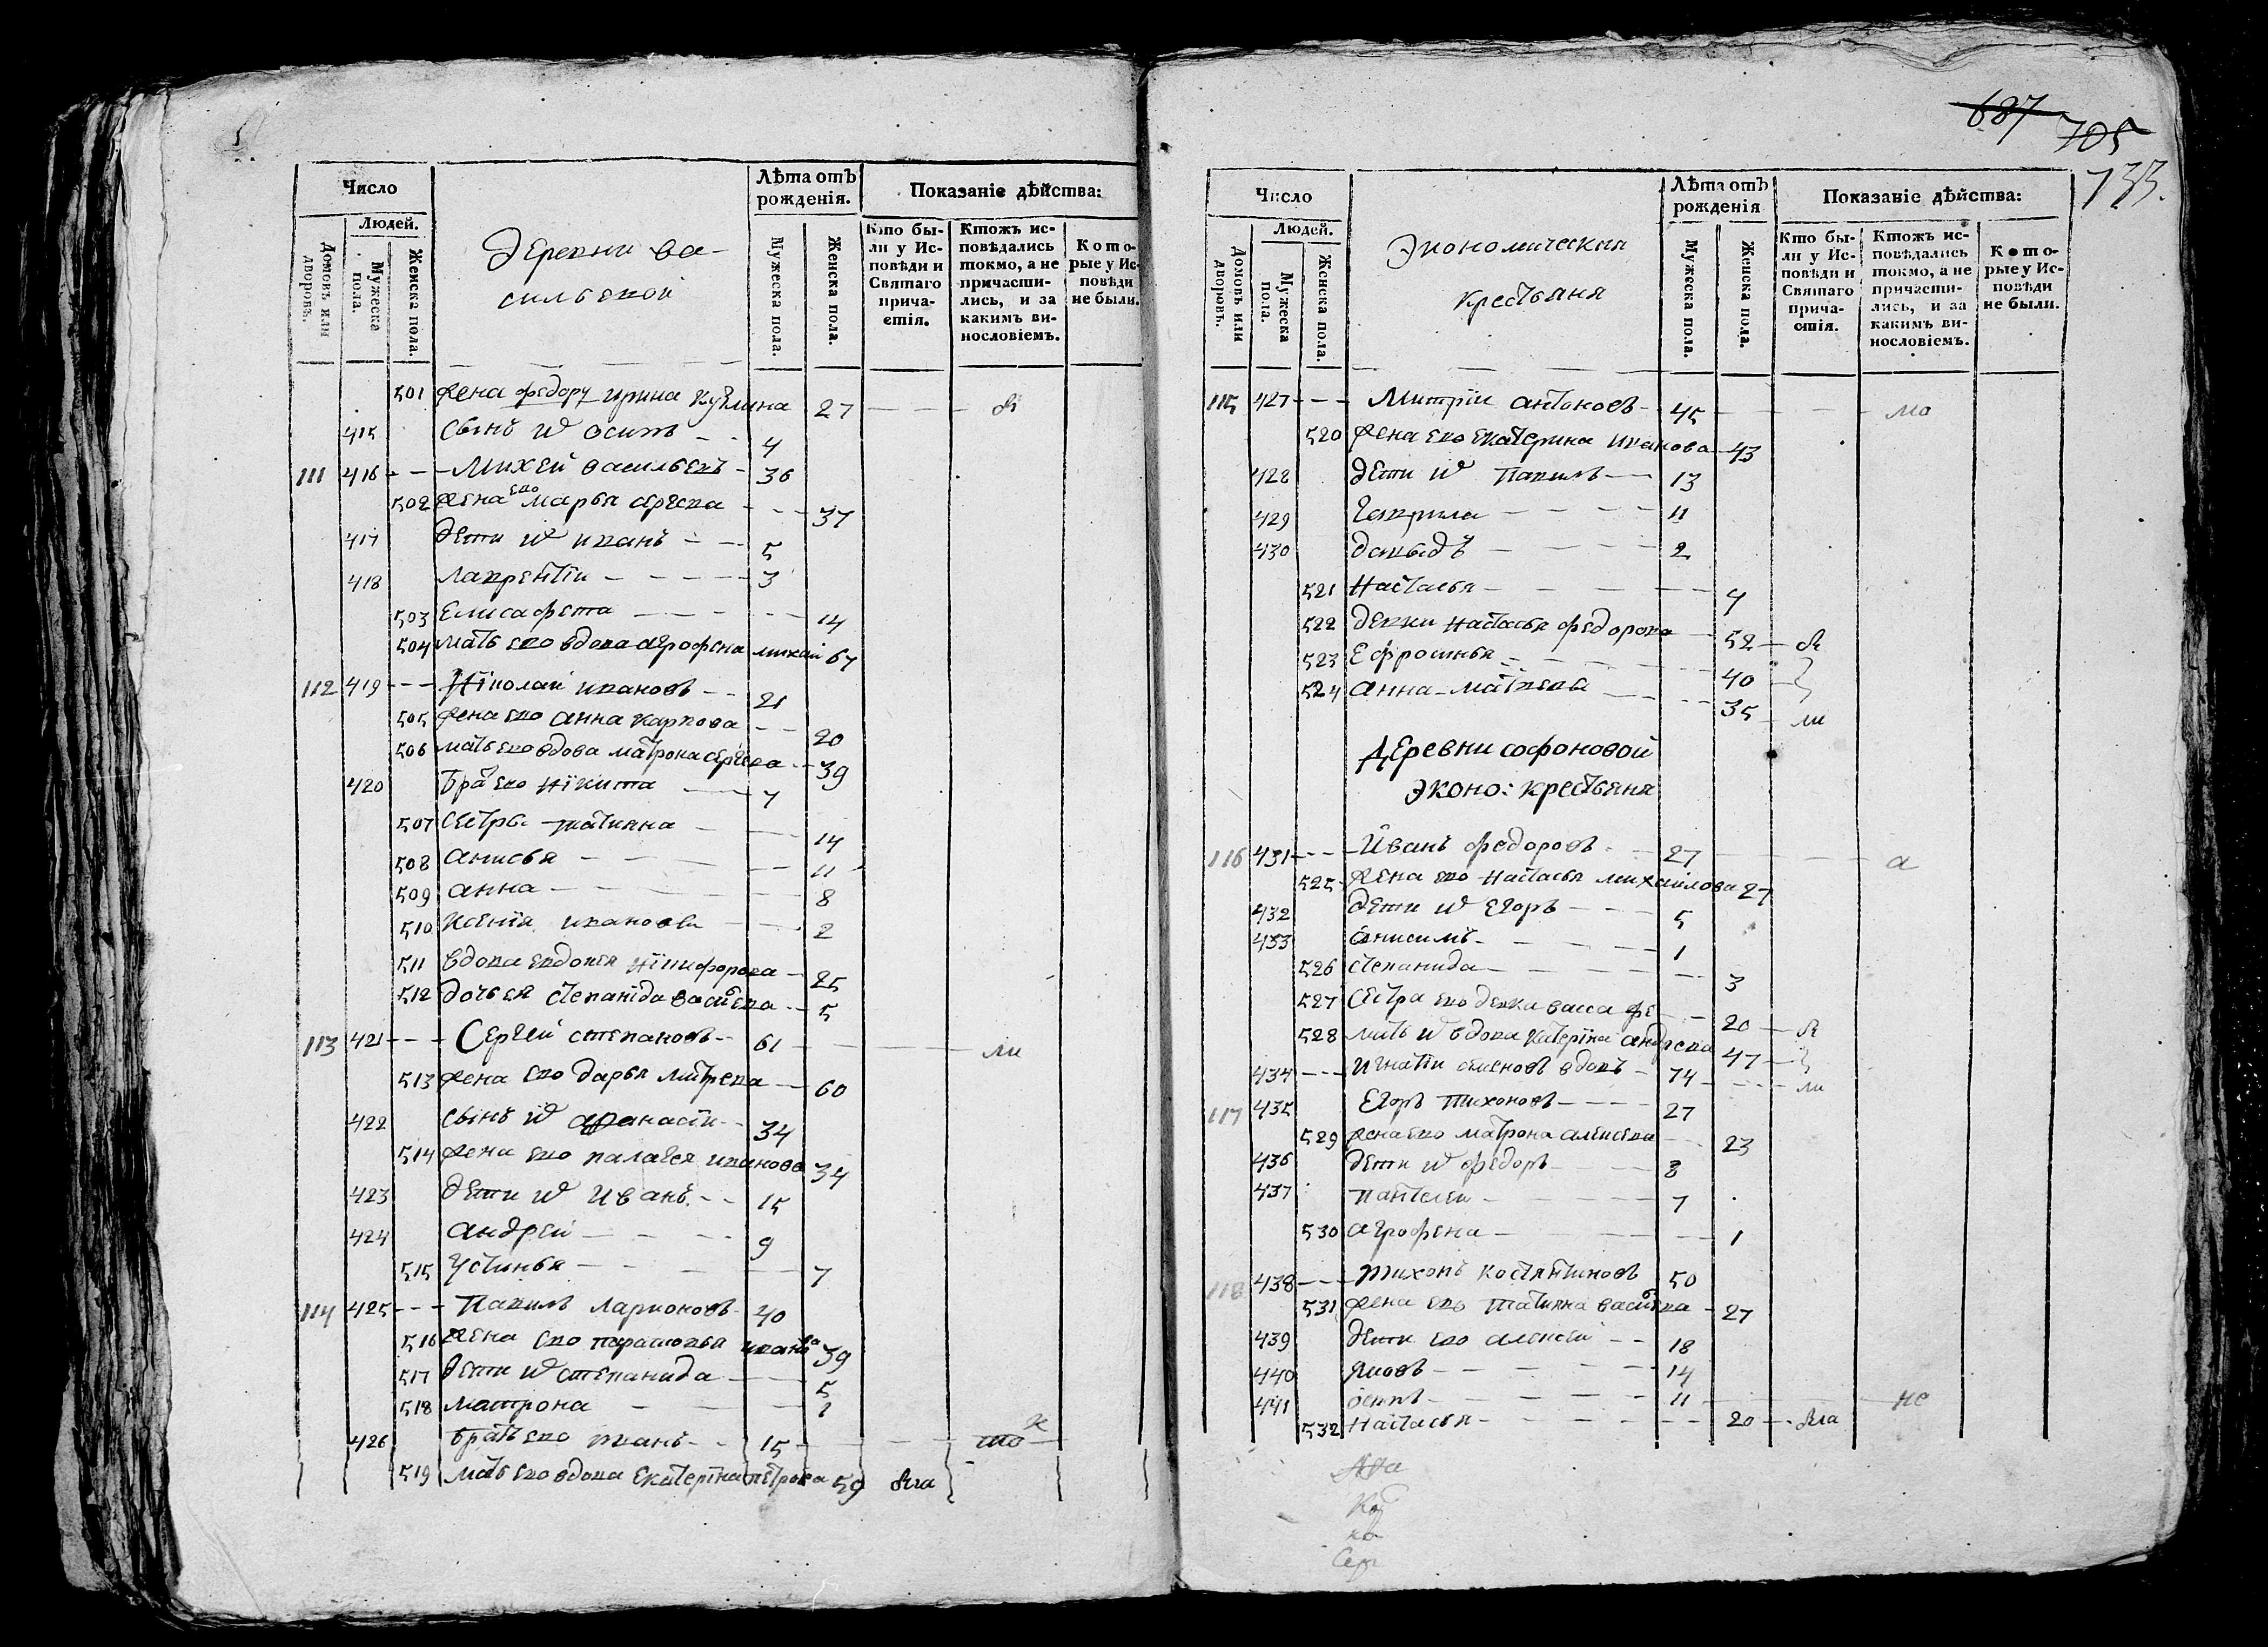 687
705
733.
Число
Лѣта отъ рожденія.
Показаніе дѣйства:
Людей.
Домовъ или дворовъ.
Мужеска пола.
Женска пола.
деревни ва-
сильевой
Мужеска пола.
Женска пола.
Кто бы-
ли у Ис-
повѣди и
Святаго
прича-
стія.
Ктожъ ис-
повѣдались
токмо, а не
причасти-
лись, и за
какимъ ви-
нословіемъ.
Кото-
рые у Ис-
повѣди
не были.
501 жена федору ирина 27
415 сынъ осипъ 4
111 416 Михей васильевъ 36
502 жена ево марья сергева 37
417 дети иванъ 5
418 лаврентїи 3
503 Елисафета 14
504 мать ево вдова агрофена 67
112 419 Нїколай ивановъ 21
505 жена ево анна карпова 20
506 мать ево вдова матрона сергева 39
420 братъ ево нїкита 7
507 сестры татияна 14
508 анисья 11
509 анна 8
510 ксенїя ивановы 2
511 вдова евдокея нїкифорова 25
512 дочь ея степанїда васильева 5
113 421 Сергей степановъ 61
513 жена ево дарья митрева 60
422 сынъ афанасїи 34
514 жена ево палагея иванова 34
423 дети иванъ 15
424 андрей 9
515 устинья 7
114 425 Павилъ ларионовъ 40
516 жена ево парасковья иванова 39
517 дети степанида 5
518 матрона 1
426 братъ ево иванъ 15
519 мать ево вдова екатерїна петрова 59
Число
Лѣта отъ рожденія
Показаніе дѣйства:
Людей.
Домовъ или дворовъ.
Мужеска пола.
Женска пола.
Экономическия
крестьяня
Мужеска пола.
Женска пола.
Кто бы-
ли у Ис-
повѣди и
Святаго
прича-
стія.
Ктожъ ис-
повѣдались
токмо, а не
причасти-
лись, и за
какимъ ви-
нословіемъ.
Кото-
рые у Ис-
повѣди
не были.
115 427 Митрїи антоновъ 45
520 жена ево екатерина иванова 43
428 дети павилъ 13
429 Гаврила 11
430 давыдъ 2
521 настасья 4
522 девки настасья федорова 52
523 Ефросинья 40
524 анна матвевы 35
деревни софоновой
эконо: крестьяня
116 431 Иванъ федоровъ 27 а
525 жена ево настасья михаилова 27
432 дети егоръ 5
433 анисимъ 1
526 степанида 3
527 сестра ево девка васса фе 20
528 мать вдова катерїна андрева 47
434 игнатїи семеновъ вдовъ 74
117 435 Егоръ тихоновъ 27
529 жена ево матрона алексева 23
436 дети федоръ 8
437 пантелеи 7
530 агрофена 1
118 438 тихонъ костянтиновъ 50
531 жена ево татияна васильева 27
439 дети ево алексеи 18
440 яковъ 14
441 осипъ 11 не
532 настасья 20